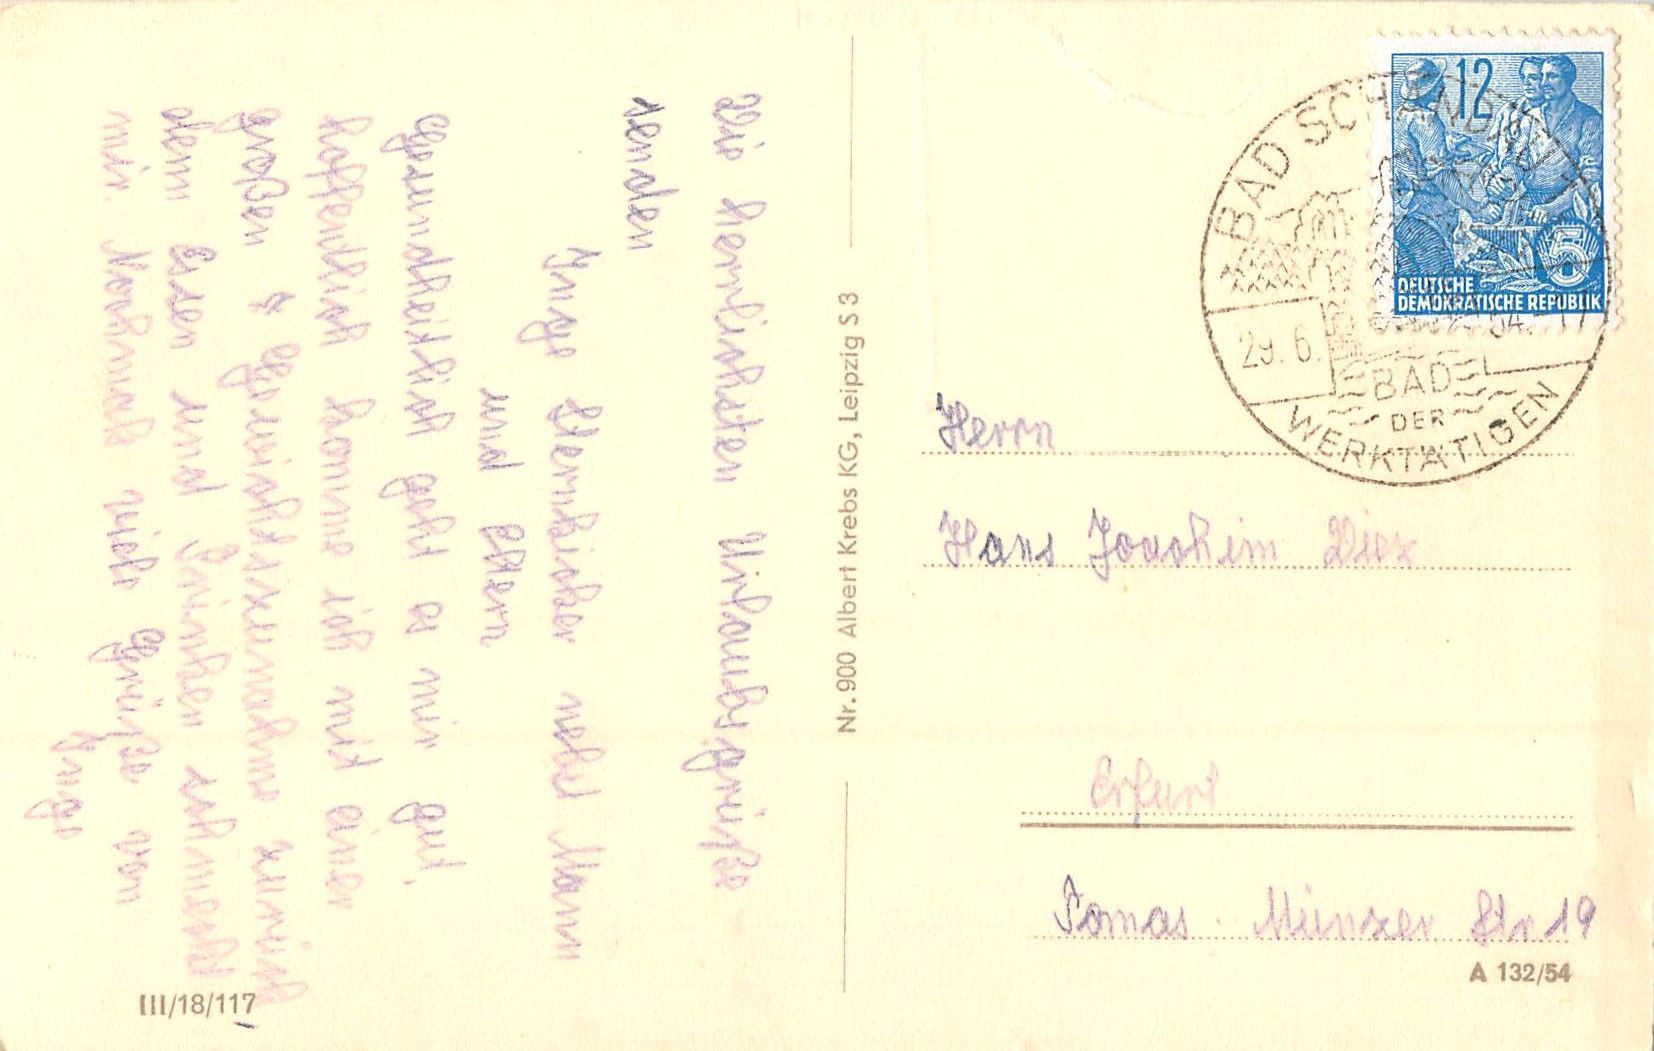 Die herrlichsten Urlaubsgrüße
senden
Inge Hembicker nebst Mann
und Eltern
Gesundheitlich geht es mir gut.
hoffentlich komme ich mit einer
großen Gewichtszunahme zurück
denn Essen und Trinken schmeckt
mir. Nochmals viele Grüße von
Inge
III/18/117
Nr. 900 Albert Krebs KG, Leipzig S 3
12
5
DEUTSCHE
DEMOKRATISCHE REPUBLIK
BAD SCHANDAU 1
29. 6. 54. - 17
BAD
DER
WERKTÄTIGEN
Herrn
Hans Joachim Diez
Erfurt
Tomas. Münzer Str 19
A 132/54